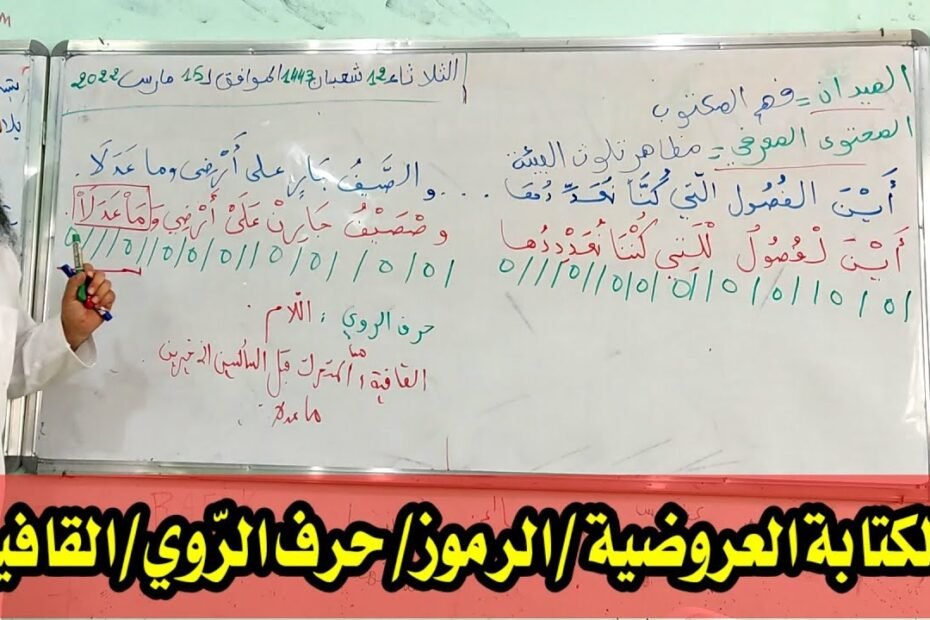 الثلاثاء 12 شعبان 1443 الموافق لـ 15 مارس 2022
الميدان = فهم المكتوب
المحتوى المعرفي = مظاهر تلوث البيئة
أَيْنَ الفُصُول الّتي كُنَّا نُعَدِّدُهَا ... والصَّيفُ جَارٍ على أَرْضِي وما عَدَلَا.
أَيْنَ لْفُصُولُ لْلَتِي كُنْنَا نُعَدْدِدُها
وصْصَيْفُ جَارِنْ عَلَىْ أَرْضِي وَمَاْ عَدَلَاْ.
/0/0//0/0/0//0/0/0//0///0
/0/0/ /0/0//0/0/0//0///0
حرف الروي : اللّام .
القافية : المتحرك قبل الساكنين الأخيرين
ما عدلا
لكتابة العروضية /الرموز/ حرف الرّوي/القافي